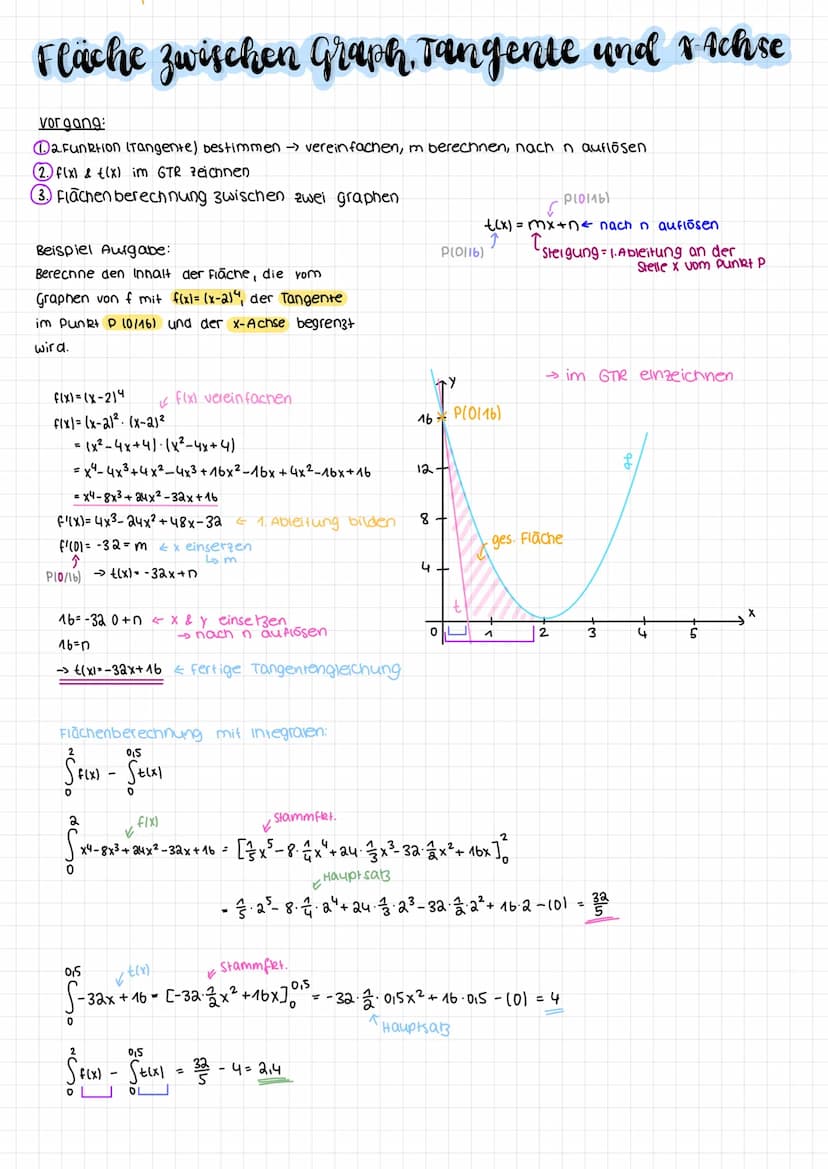 Fläche zwischen Graph, Tangente und x-Achse
Vorgang:
1. 2. Funktion (Tangente) bestimmen → vereinfachen, m berechnen, nach n auflösen
2. f(x) & t(x) im GTR zeichnen
3. Flächenberechnung zwischen zwei Graphen
P(0/16)
t(x) = mx+n ← nach n auflösen
P(0/16)
Steigung = 1. Ableitung an der
Stelle x vom Punkt P
Beispiel Aufgabe:
Berechne den Inhalt der Fläche, die vom
Graphen von f mit f(x)= (x-2)⁴, der Tangente
im Punkt P (0/16) und der x-Achse begrenzt
wird.
→ im GTR einzeichnen
f(x) = (x-2)⁴
f(x) vereinfachen
f(x)= (x-2)² · (x-2)²
= (x²-4x+4) · (x²-4x+4)
= x⁴-4x³+4x²-4x³+16x²-16x+4x²-16x+16
= x⁴-8x³+24x²-32x+16
f'(x)= 4x³-24x²+48x-32 ← 1. Ableitung bilden
f'(0)= -32 = m ← x einsetzen
↳ m
P(0/16) → t(x)= -32x+n
16= -32 · 0+n ← x & y einsetzen
→ nach n auflösen
16=n
→ t(x)=-32x+16 ← fertige Tangentengleichung
y
16 P(0/16)
12
8
4
ges. Fläche
t
0 1 2 3 4 5 x
Flächenberechnung mit Integralen:
∫₀² f(x) - ∫₀^0,5 t(x)
f(x) Stammfkt.
∫₀² x⁴-8x³+24x²-32x+16 = [1/5 x⁵-8·1/4 x⁴+24·1/3 x³-32·1/2 x²+16x]₀²
Hauptsatz
= 1/5 · 2⁵-8·1/4·2⁴+24·1/3·2³-32·1/2·2²+16·2-(0) = 32/5
t(x) Stammfkt.
∫₀^0,5 -32x+16 = [-32·1/2 x²+16x]₀^0,5 = -32·1/2·0,5x²+16·0,5-(0) = 4
Hauptsatz
∫₀² f(x) - ∫₀^0,5 t(x) = 32/5 - 4 = 2,4